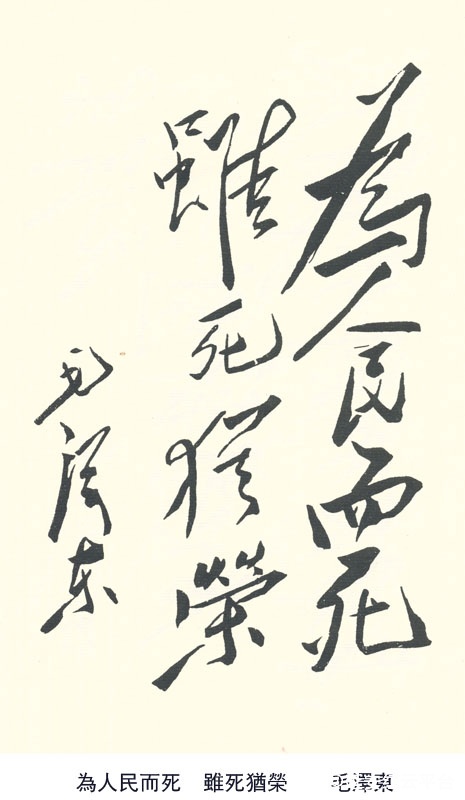 為人民而死
雖死猶榮
毛澤东
為人民而死 雖死猶榮 毛澤東